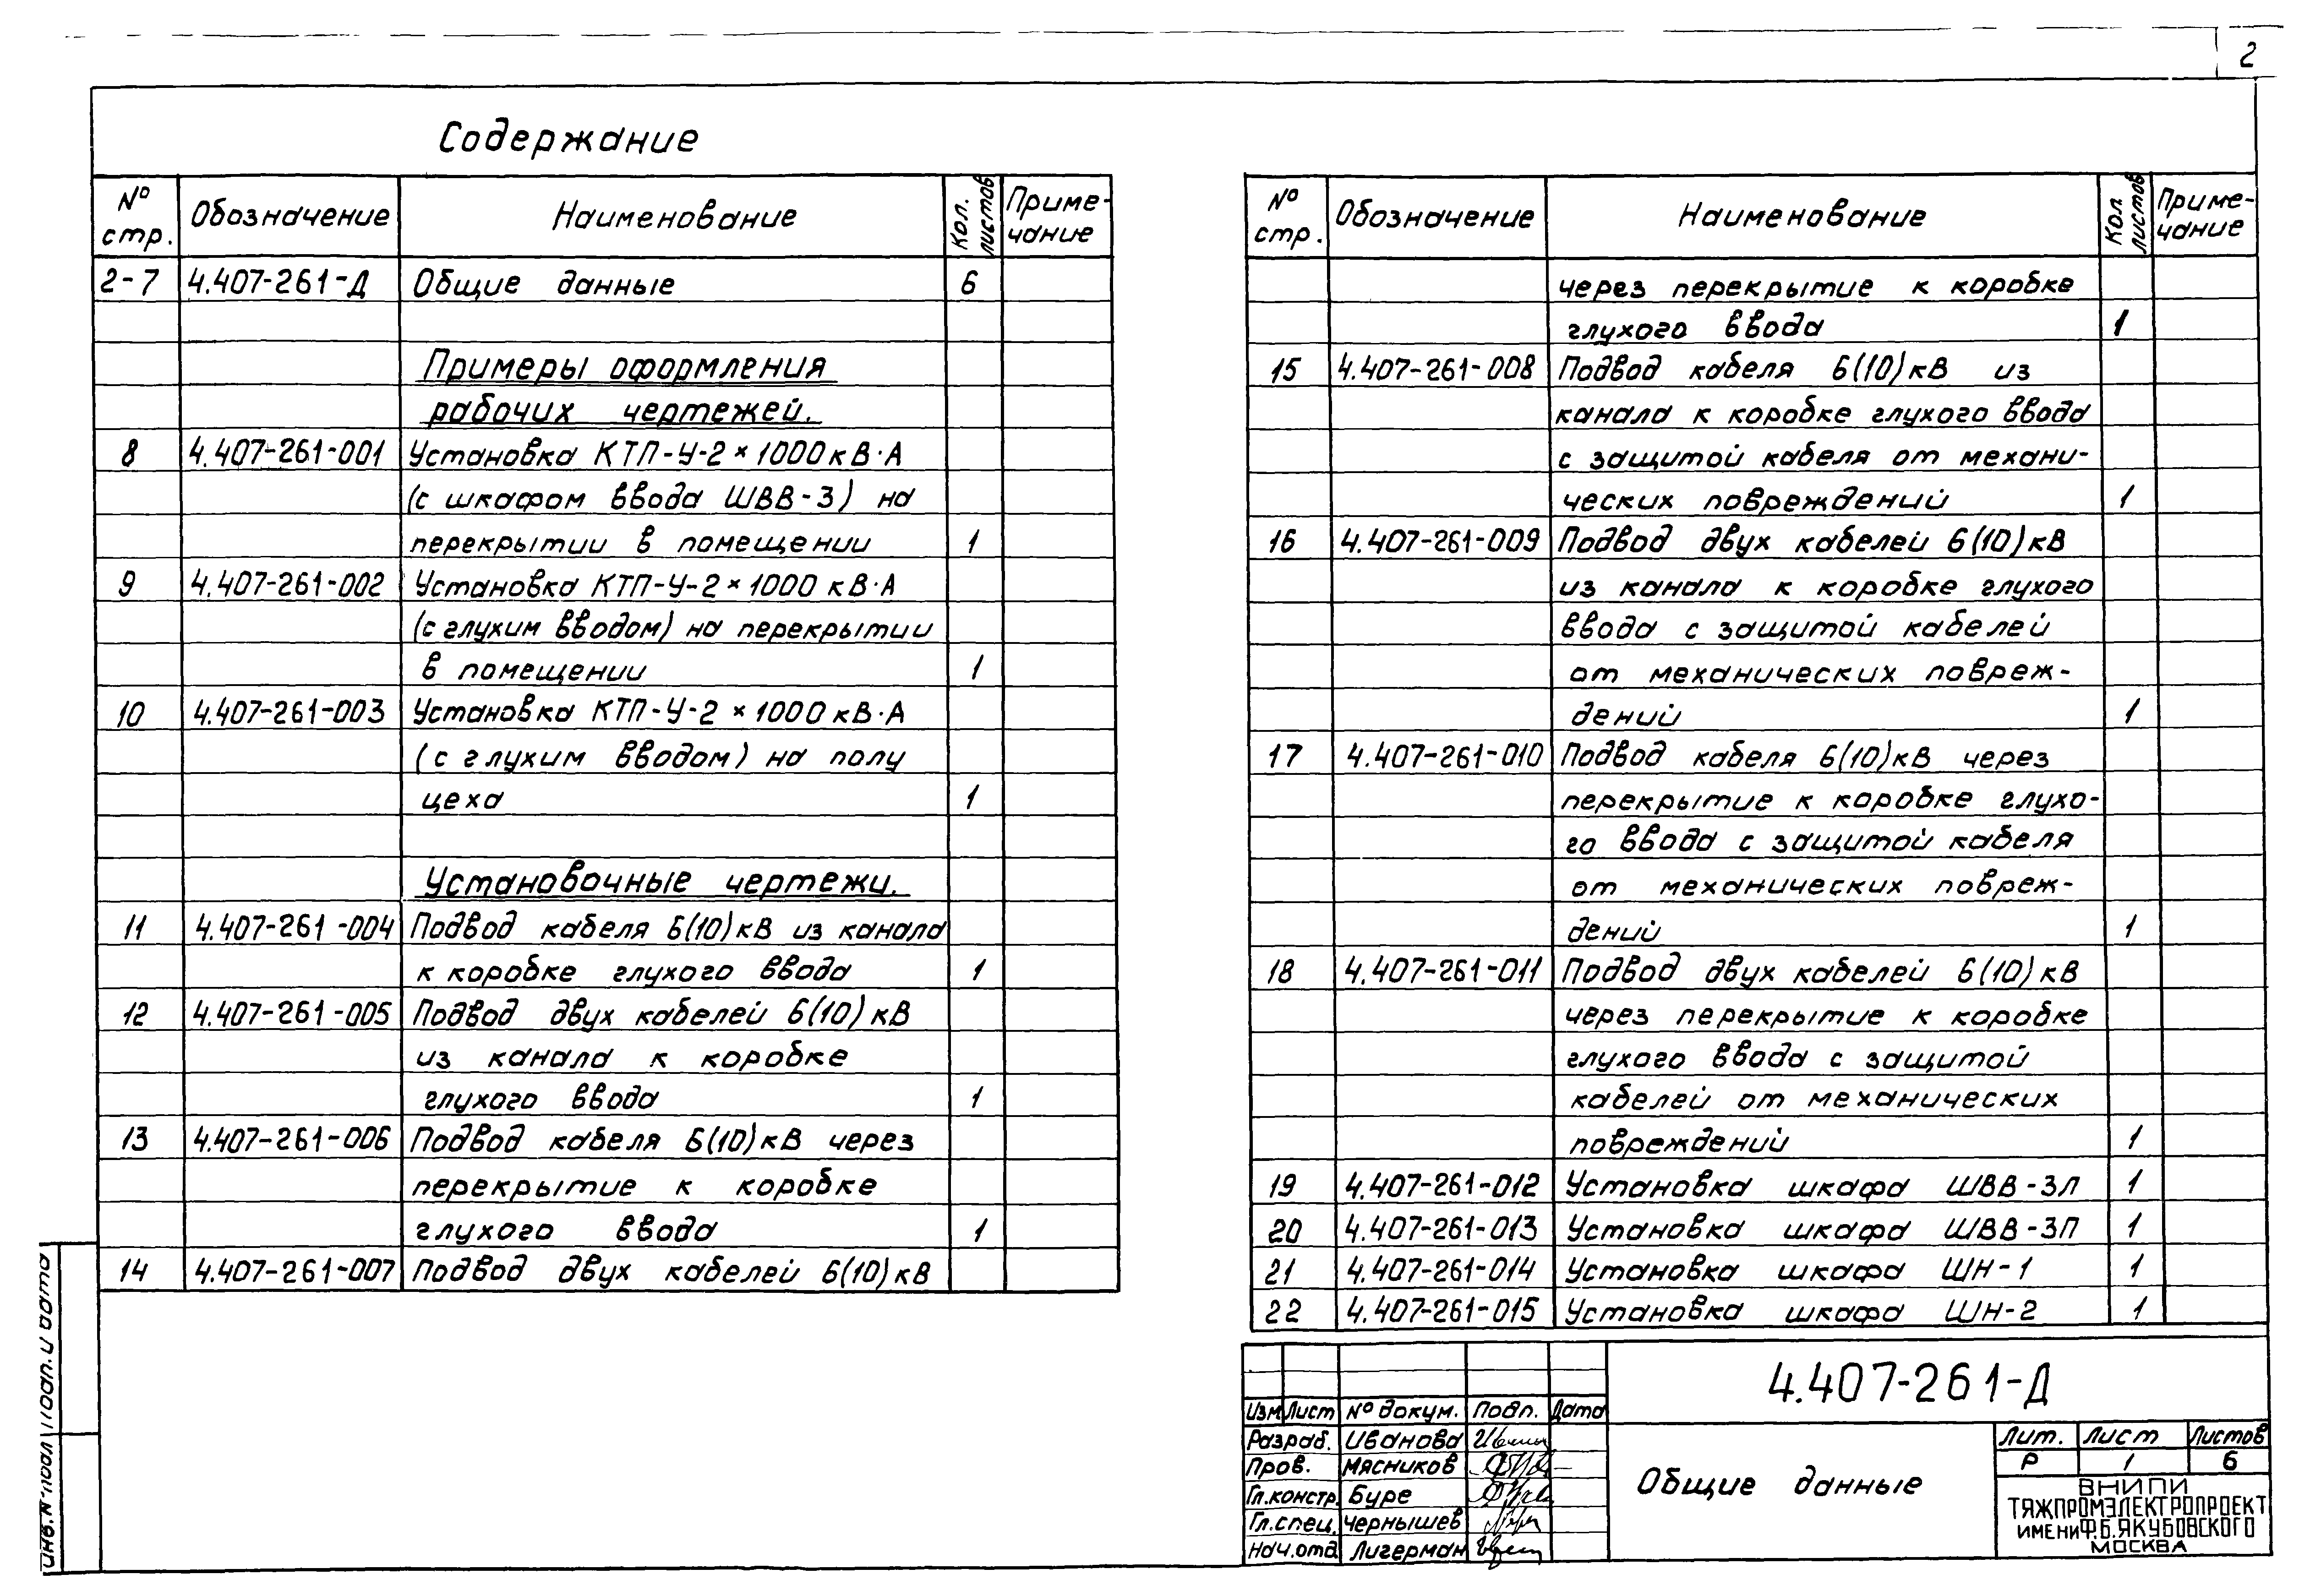 2
Содержание
№ стр. Обозначение Наименование Кол. листов Приме-чание
2-7 4.407-261-Д Общие данные 6
Примеры оформления
рабочих чертежей.
8 4.407-261-001 Установка КТП-У-2×1000кВ·А
(с шкафом ввода ШВВ-3) на
перекрытии в помещении 1
9 4.407-261-002 Установка КТП-У-2×1000 кВ·А
(с глухим вводом) на перекрытии
в помещении 1
10 4.407-261-003 Установка КТП-У-2×1000 кВ·А
(с глухим вводом) на полу
цеха 1
Установочные чертежи.
11 4.407-261-004 Подвод кабеля 6(10)кВ из канала
к коробке глухого ввода 1
12 4.407-261-005 Подвод двух кабелей 6(10)кВ
из канала к коробке
глухого ввода 1
13 4.407-261-006 Подвод кабеля 6(10)кВ через
перекрытие к коробке
глухого ввода 1
14 4.407-261-007 Подвод двух кабелей 6(10)кВ
№ стр. Обозначение Наименование Кол листов Приме-чание
через перекрытие к коробке
глухого ввода 1
15 4.407-261-008 Подвод кабеля 6(10)кВ из
канала к коробке глухого ввода
с защитой кабеля от механи-
ческих повреждений 1
16 4.407-261-009 Подвод двух кабелей 6(10)кВ
из канала к коробке глухого
ввода с защитой кабелей
от механических повреж-
дений 1
17 4.407-261-010 Подвод кабеля 6(10)кВ через
перекрытие к коробке глухо-
го ввода с защитой кабеля
от механических повреж-
дений 1
18 4.407-261-011 Подвод двух кабелей 6(10)кВ
через перекрытие к коробке
глухого ввода с защитой
кабелей от механических
повреждений 1
19 4.407-261-012 Установка шкафа ШВВ-3Л 1
20 4.407-261-013 Установка шкафа ШВВ-3П 1
21 4.407-261-014 Установка шкафа ШН-1 1
22 4.407-261-015 Установка шкафа ШН-2 1
4.407-261-Д
Изм Лист № докум. Подп. Дата
Разраб. Иванова
Пров. Мясников
Гл.констр. Буре
Гл.спец. Чернышев
Нач.отд. Лигерман
Общие данные
Лит. Лист Листов
Р 1 6
ВНИПИ
ТЯЖПРОМЭЛЕКТРОПРОЕКТ
ИМЕНИ Ф.Б.ЯКУБОВСКОГО
МОСКВА
Инв.№ подл.